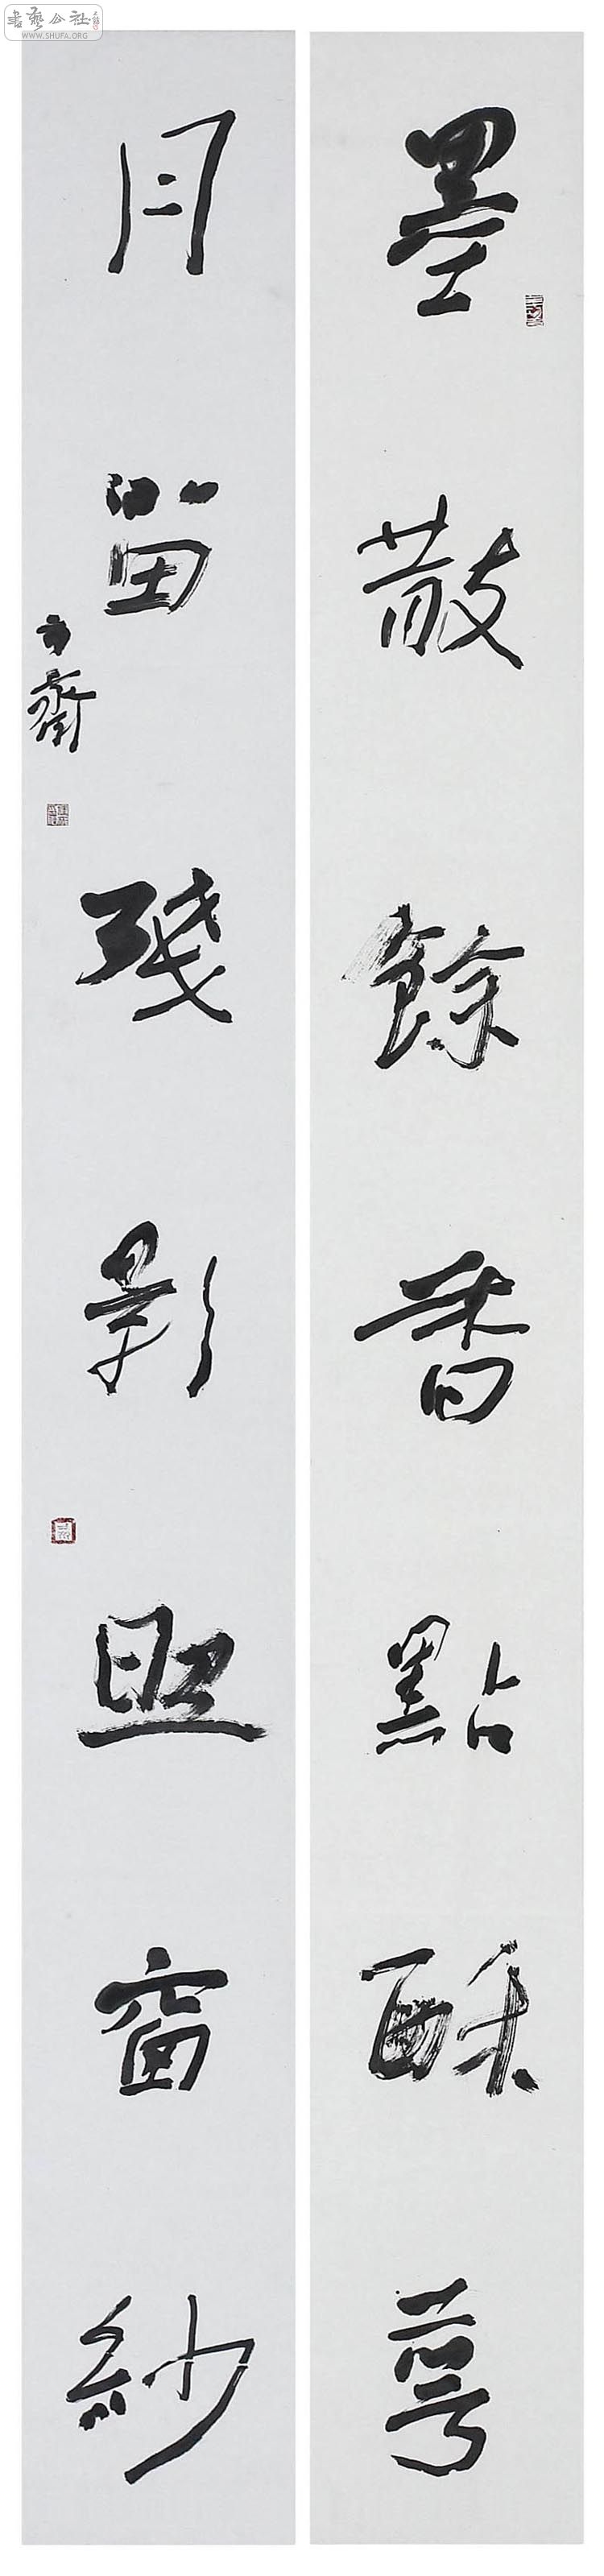 書藝公社
WWW.SHUFA.ORG
墨散餘香點酥萼
月留殘影照窗紗
齋